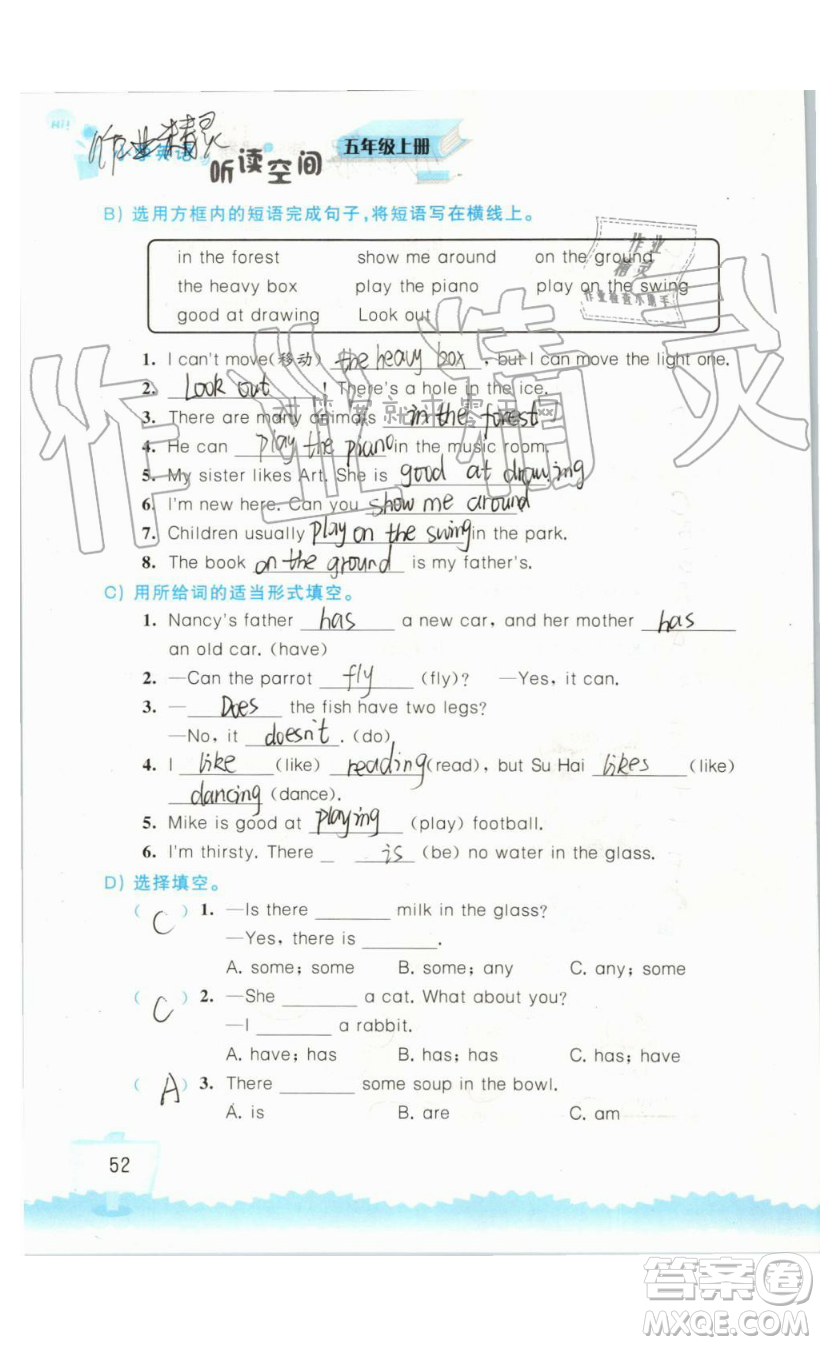 Hi!
作业精灵
小学英语
听读空间
五年级上册
B) 选用方框内的短语完成句子,将短语写在横线上。
in the forest show me around on the ground
the heavy box play the piano play on the swing
good at drawing Look out
作业
精灵
作业检查小助手
作业精灵
1. I can't move(移动) the heavy box , but I can move the light one.
2. Look out ! There's a hole in the ice.
3. There are many animals in the forest .
4. He can play the piano in the music room.
5. My sister likes Art. She is good at drawing
6. I'm new here. Can you show me around
7. Children usually play on the swing in the park.
8. The book on the ground is my father's.
C) 用所给词的适当形式填空。
1. Nancy's father has a new car, and her mother has
an old car. (have)
2. —Can the parrot fly (fly)? —Yes, it can.
3. — Does the fish have two legs?
—No, it doesn't . (do)
4. I like (like) reading (read), but Su Hai likes (like)
dancing (dance).
5. Mike is good at playing (play) football.
6. I'm thirsty. There is (be) no water in the glass.
D) 选择填空。
( C ) 1. —Is there ______ milk in the glass?
—Yes, there is ______.
A. some; some B. some; any C. any; some
( C ) 2. —She ______ a cat. What about you?
—I ______ a rabbit.
A. have; has B. has; has C. has; have
( A ) 3. There ______ some soup in the bowl.
A. is B. are C. am
52
答案圈
MXQE.COM